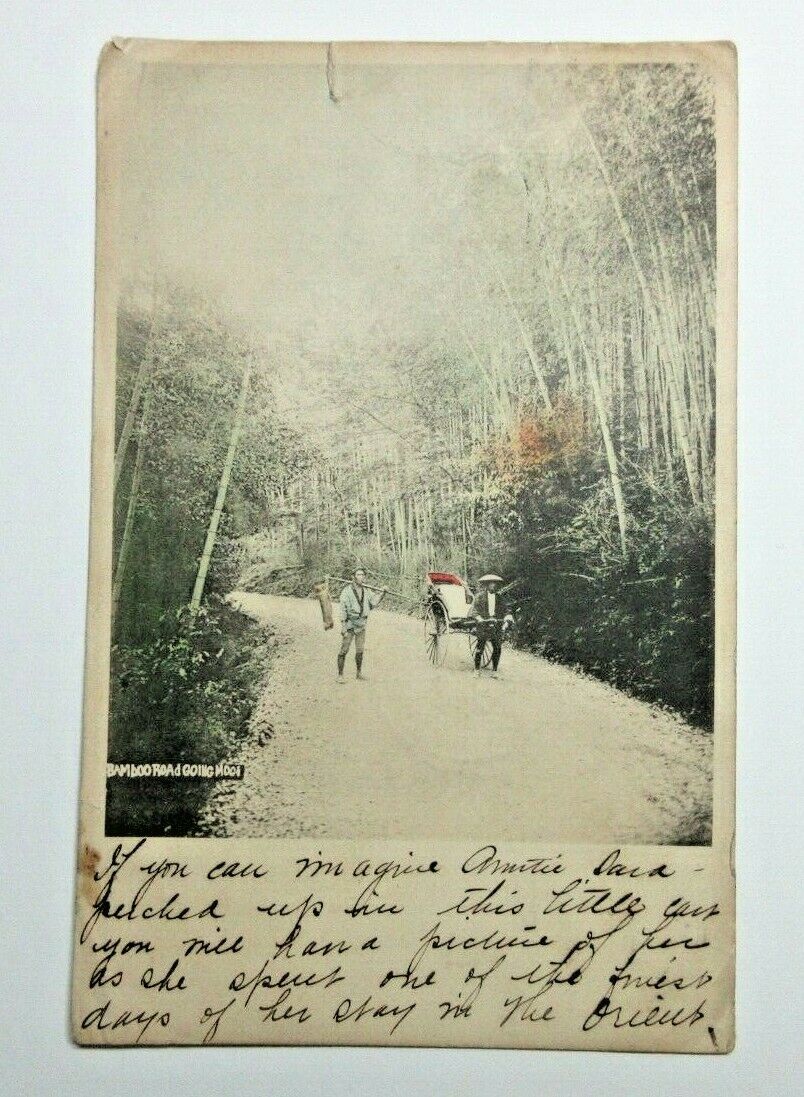 BAMBOO ROAD GOING MOOI
If you can imagine Auntie Dara -
perched up in this little cart
you will have a picture of her
as she spent one of the finest
days of her stay in the Orient.